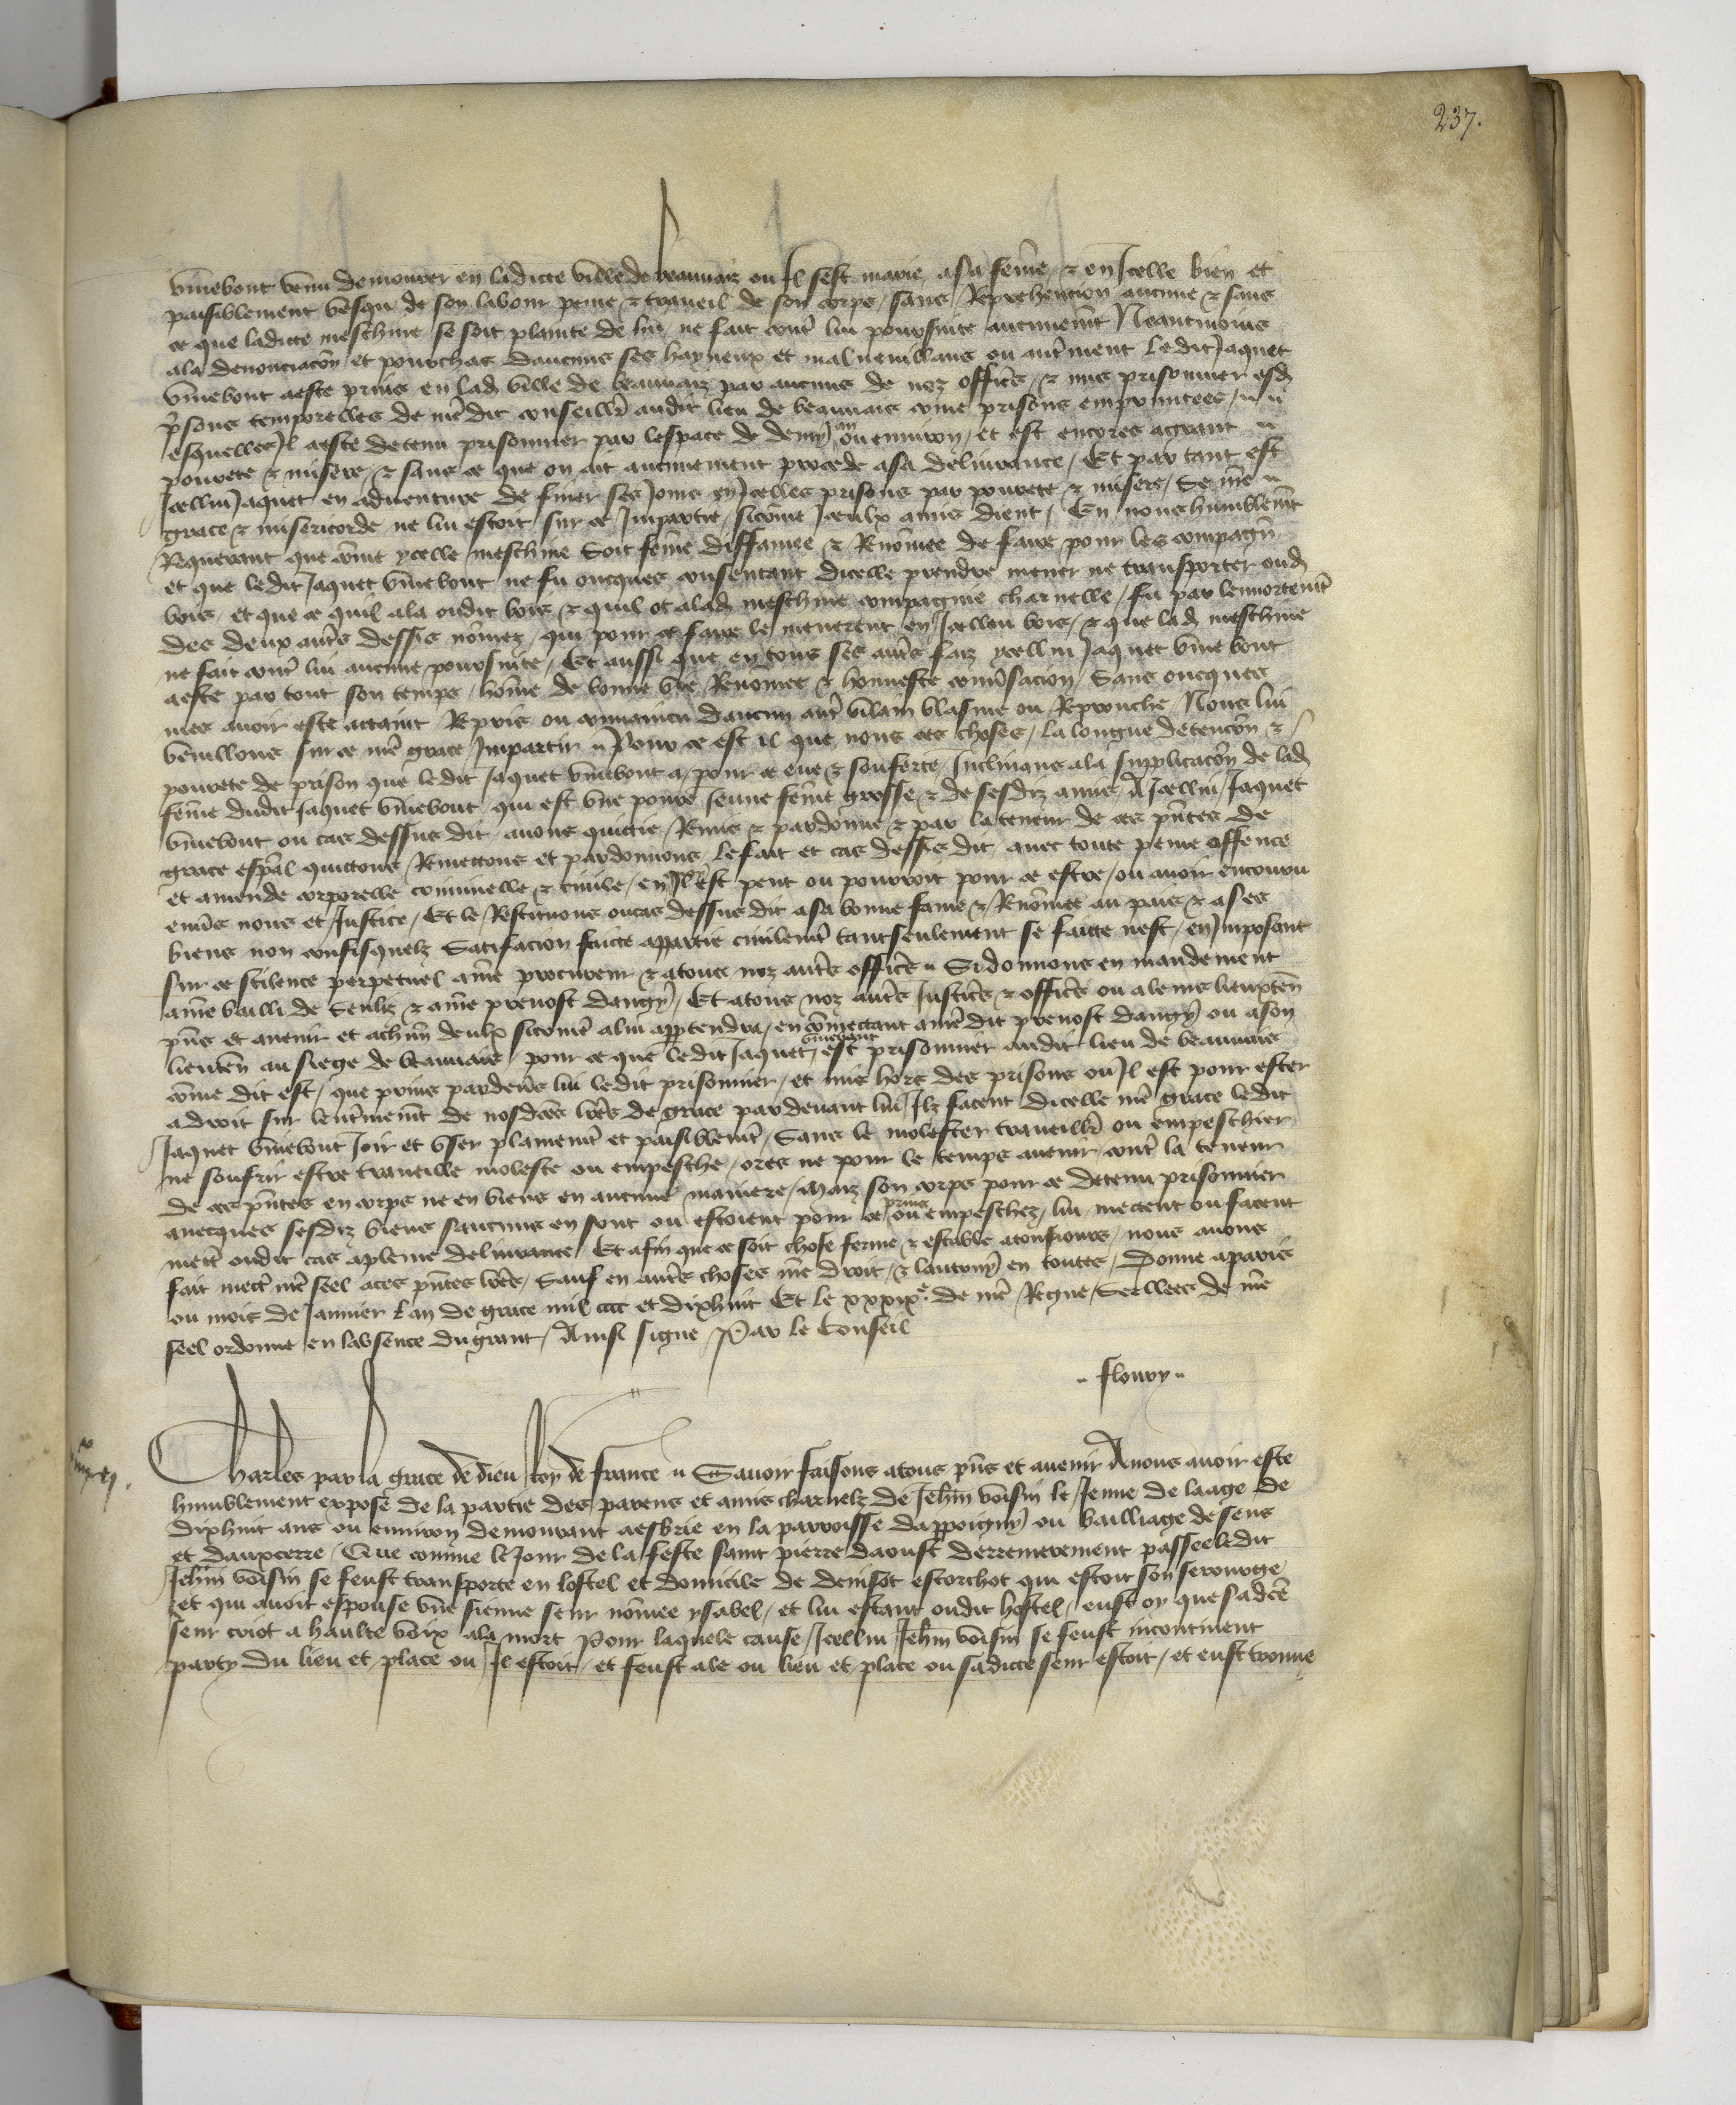 237.
venu demourer en ladicte ville de beauvaiz ou Il sest marie a sa feme & en Icelle bien et
paisiblement vesqu de son labour peine & traveil de son corps sans Reprehencion aucune & sans
ce que ladicte meschine se soit plainte de lui ne fait contr lui poursuite aucunemt Neantmoins
ala denonciacon et pourchas daucuns ses hayneux et malveuillans ou autrment ledit Jaquet
a este prins en lad ville de beauvaiz par aucuns de noz offics & mis prisonnier esd
prisons temporelles de nre dit conseillr audit lieu de beauvais come prisons empruntees
esquelles Il a este detenu prisonnier par lespace de demy an ou environ et est encores a grant
povrete & misere & sans ce que on ait aucunement procede a sa delivrance Et par tant est
Icellui Jaquet en adventure de finer ses Jours en Icelles prisons par povrete & misere Se nre
grace & misericorde ne lui estoit sur ce Impartie sicome Iceulx amis dient En nous humblemt
Requerant que come ycelle meschine soit feme diffamee & Renomee de faire pour les compagn
et que ledit Jaquet ne fu oncques consentant dicelle prendre mener ne transporter oud
bois et que ce quil ala oudit bois & quil ot alad meschine compagnie charnelle fu par lennortemt
des deux autrs dessus nomez qui pour ce faire le menerent en Icellui bois & que lad meschine
ne fait contr lui aucune poursuite Et aussi que en tous ses autrs faiz ycellui Jaquet
a este par tout son temps home de bonne vie Renomee & honneste conversacion Sans oncques
mes avoir este attaint Repris ou convaincu daucun autr vilain blasme ou Reprouche Nous lui
veuillons sur ce nre grace Impartir Pour ce est il que nous ces choses la longue detencon &
povrete de prison que ledit Jaquet a pour ce eue & soufferte Inclinans ala supplicacon de lad
feme dudit Jaquet qui est une povre Jeune feme grosse & de sesdiz amis A Icellui Jaquet
ou cas dessus dit avons quictie Remis & pardonne & par la teneur de ces pntes de
grace espal quictons Remettons et pardonnons le fait et cas dessus dit avec toute peine offence
et amende corporelle criminelle & civile en quoy Il est peut ou pourroit pour ce estre ou avoir encouru
envrs nous et Justice Et le Restituons ou cas dessus dit a sa bonne fame & Renomee au pais & a ses
biens non confisquez Satifacion faicte a partie civilemt tant seulement se faicte nest en Imposant
sur ce scilence perpetuel a nre procureur & atous noz autrs offics Si donnons en mandement
a nre bailli de Senliz & a nre prevost dangy Et atous noz autrs Justics & offics ou aleurs lieuxten
pns et avenir et achun deulx sicome alui appartendra en comectant a nre dit prevost dangy ou a son
lieuten au siege de beauvais pour ce que ledit Jaquet est prisonnier audit lieu de beauvais
come dit est que prins par devrs lui ledit prisonnier et mis hors des prisons ou Il est pour ester
a droit sur lentrinemt de nosdces lres de grace par devant lui Ilz facent dicelle nre grace ledit
Jaquet Joir et user plainemt et paisiblemt Sans le molester traveillr ou empeschier
ne soufrir estre traveille moleste ou empesche ores ne pour le temps avenir contr la teneur
de ces pntes en corps ne en biens en aucune maniere Maiz son corps pour ce detenu prisonnier
avecques sesdiz biens saucuns en sont ou estoient pour ce prins ou empeschez lui mectent ou facent
mettr oudit cas a pleine delivrance Et afin que ce soit chose ferme & estable atousjours nous avons
fait mectr nre seel aces pntes lres Sauf en autrs choses nre droit & lautruy en toutes Donne a paris
ou mois de Janvier Lan de grace mil cccc et dixhuit Et le xxxixe de nre Regne Seellees de nre
seel ordonne en labsence du grant Ainsi signe Par le Conseil
floury
Charles par la grace de dieu Roy de france Savoir faisons atous pns et avenir A nous avoir este
humblement expose de la partie des parens et amis charnelz de Jehan voisin le Jeune de laage de
dixhuit ans ou environ demourant a esbrie en la parroisse dappoigny ou bailliage de sens
et dauxcerre Que comme le Jour de la feste saint pierre daoust derrenierement passe ledit
Jehan voisin se feust transporte en lostel et domicile de denisot escorchot qui estoit son serourge
et qui avoit espouse une sienne seur nomee ysabel et lui estant oudit hostel eust oy que sadce
seur crioit a haulte voix ala mort Pour laquele cause Icellui Jehan voisin se feust incontinent
party du lieu et place ou Il estoit et feust ale ou lieu et place ou sadicte seur estoit et eust trouve